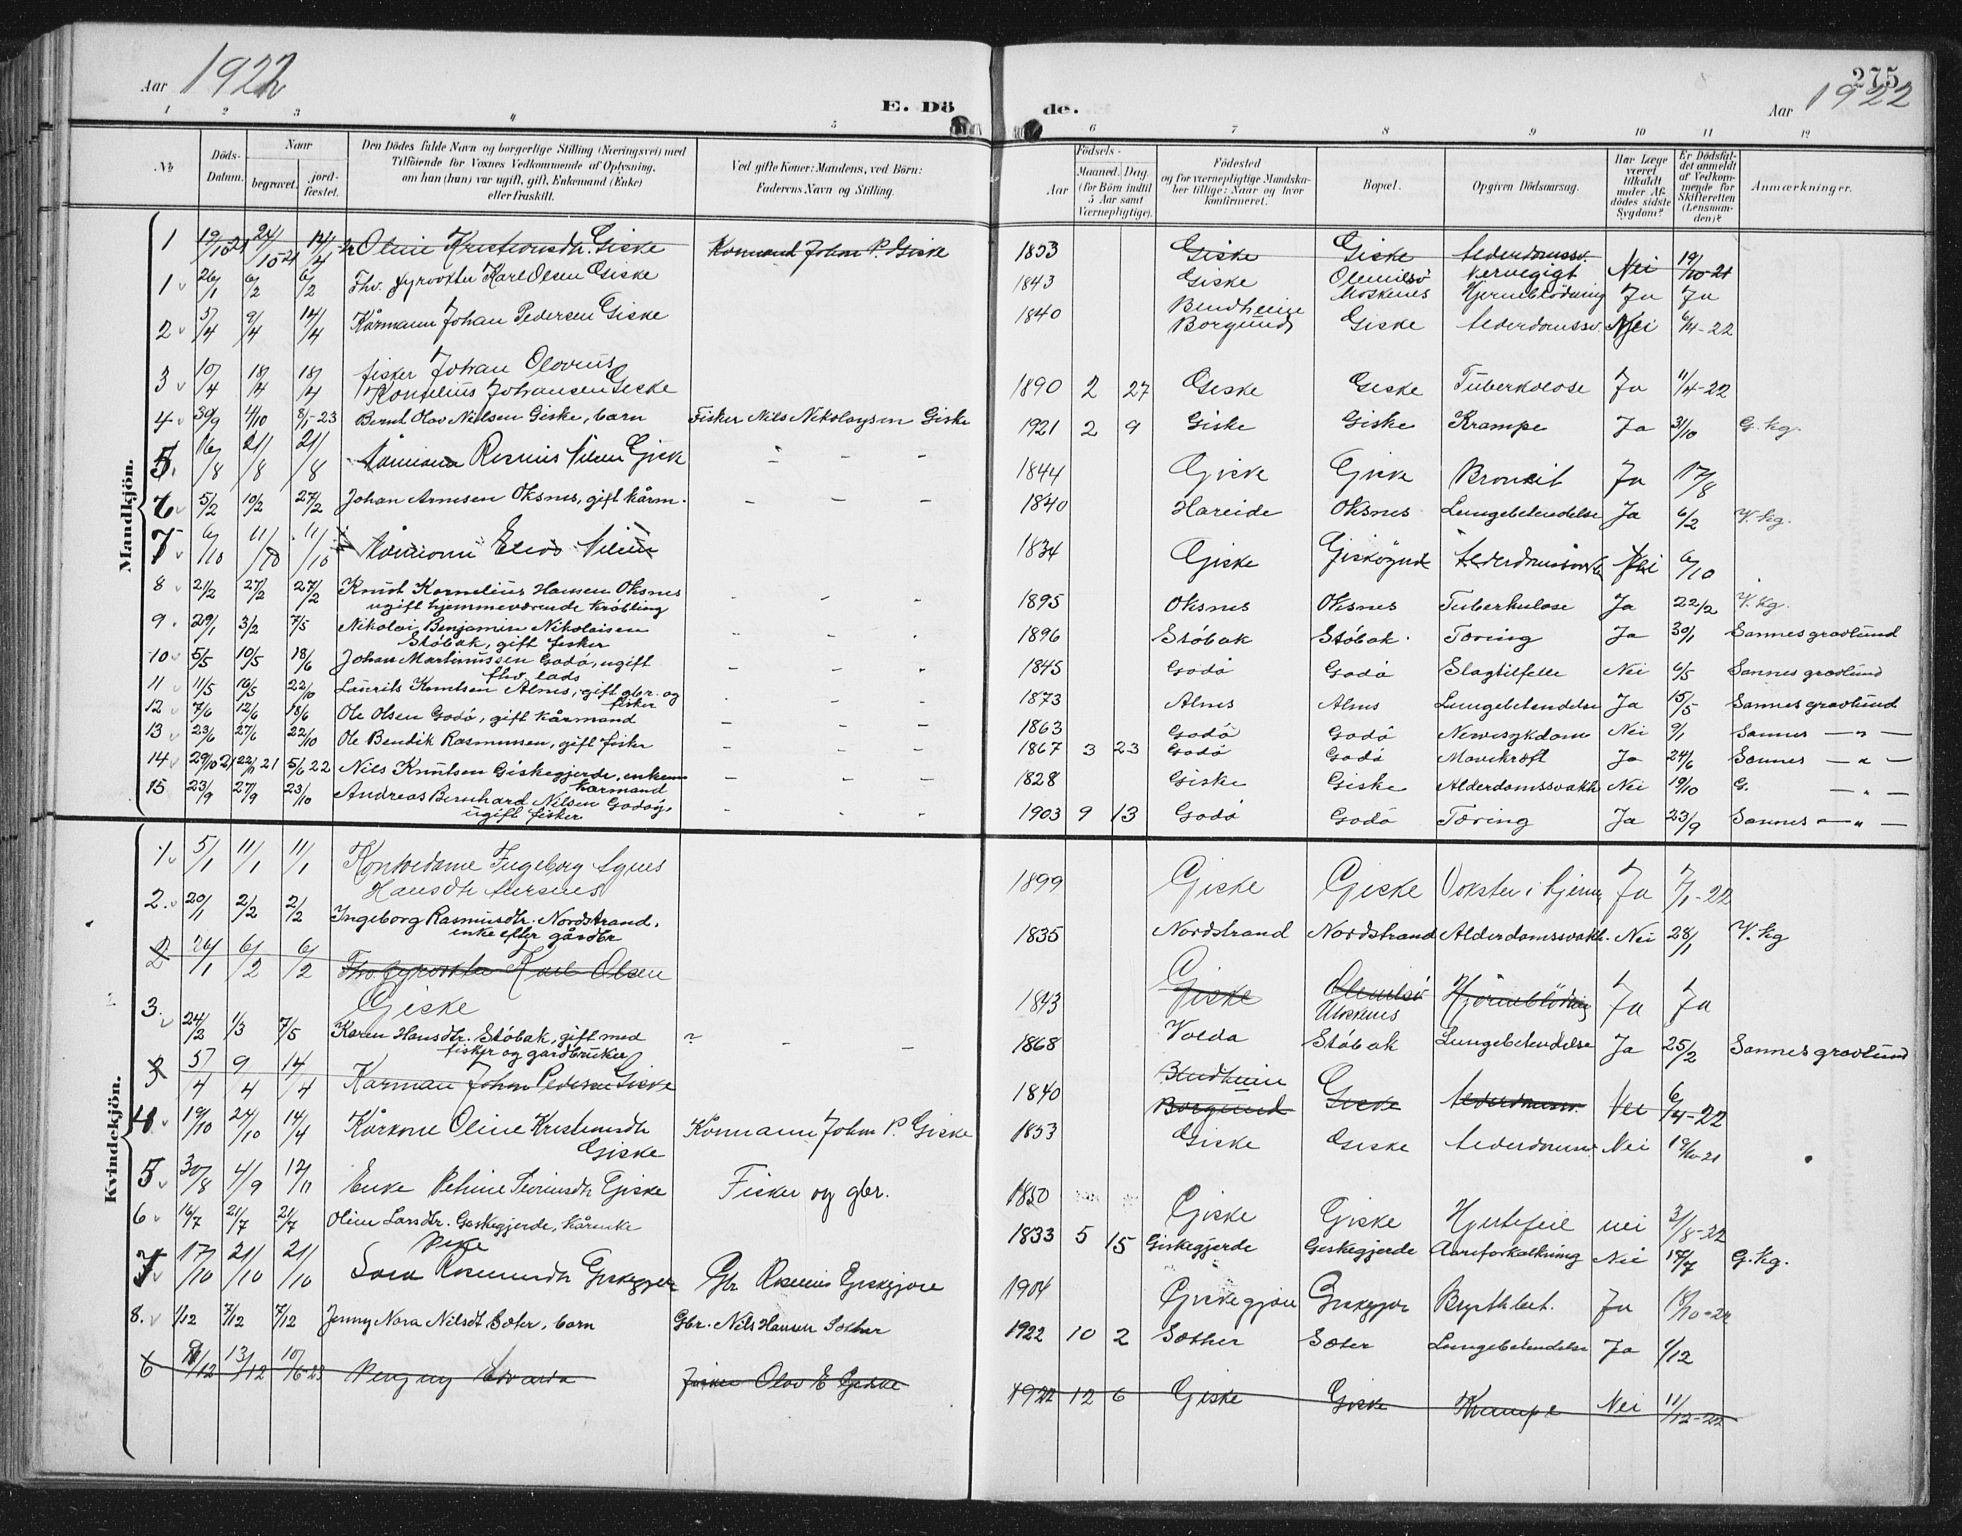 Aar 1922
E. Döde.
275
Aar 1922
1 2 3 4 5 6 7 8 9 10 11 12
No
Döds-Datum.
Naar
begravet.
jordfæstet.
Den Dödes fulde Navn og borgerlige Stilling (Næringsvei) med
Tilföiende for Voxnes Vedkommende af Oplysning,
om han (hun) var ugift, gift, Enkemand (Enke)
eller fraskilt.
Ved gifte Koner: Mandens, ved Börn:
Faderens Navn og Stilling.
Födsels-
Aar
Maaned. Dag
(for Börn indtil
5 Aar samt
Værnepligtige).
Födested
og for værnepligtige Mandskaber tillige: Naar og hvor
konfirmeret.
Bopæl.
Opgiven Dödsaarsag.
Har Læge
været
tilkaldt
under Afdödes sidste
Sygdom?
Er Dödsfaldet anmeldt
af Vedkommende for
Skifteretten
(Lensmanden)?
Anmærkninger.
Mandkjön.
1 19/10 21 24/10 21 14/4 Oline Kristiansdtr. Giske Kormand Johan P. Giske 1853 Giske Giske Alderdomssv. Nei 19/10-21
1 26/1 6/2 6/2 Fhv. fyrvokter Karl Olsen Giske 1843 Giske Moskenes Hjerneblödning Ja Ja
2 5/4 9/4 14/4 Kårmann Johan Pedersen Giske 1840 Blindheim Borgund Giske Alderdomssv. Nei 6/4-22
3 10/4 18/4 18/4 fisker Johan Olovius
Kornelius Johansen Giske 1890 2 27 Giske Giske Tuberkolose Ja 11/4-22
4 30/9 4/10 8/1-23 Bernt Olav Nielsen Giske, barn Fisker Nils Nikolaysen Giske 1921 2 9 Giske Giske Krampe Ja 3/10 G. kg.
5. 16/8 21/8 21/8 Kårmann Rasmus Nilsen Giske - - - 1844 Giske Giske Bronkit Ja 17/8
6 5/2 10/2 27/2 Johan Arnesen Oksnes, gift kårm. - - - 1840 Hareide Oksnes Lungebetendelse Ja 6/2 V. kg.
7 6/10 11/10 11/10 Kårmann Elias Nilsen 1834 Giske Alderdomssvakh Nei 6/10
8 21/2 27/2 27/2 Knut Kornelius Hansen Oksnes
ugift hjemmeværende krøbling - - - 1895 Oksnes Oksnes Tuberkulose Ja 22/2 V. kg.
9. 29/1 3/2 7/5 Nikolai Benjamin Nikolaisen
Støbak, gift fisker - - - 1896 Støbak Støbak. Tæring Ja 30/1 Sannes gravlund
10 5/5 10/5 18/6 Johan Martinussen Godø, ugift
fhv. lods - - - 1845 Godø Godø Slagtilfelle Nei 6/5 Sannes gravlund
11 11/5 16/5 22/10 Laurits Knutsen Alnes, gift gbr. og
fisker 1873 Alnes Alnes Lungebetendelse Ja 15/5 Sannes gravlund
12 7/6 12/6 18/6 Ole Olsen Godø, gift kårmand - - - 1863 Godø Godø Nervesykdom Nei 9/1 Sannes —"—
13 23/6 27/6 22/10 Ole Bendik Rasmussen, gift fisker - - - 1867 3 23 Godø Godø Mavekræft Ja 24/6 Sannes —"—
14 29/10 21 22/11 21 5/6 22 Nils Knutsen Giskegjerde, enkem
kårmand - - - 1828 Giske Giske Alderdomssvakh Nei 19/10 G. —"—
15 23/9 27/9 23/10 Andreas Bernhard Nilsen Godøy,
ugift fisker - - - 1903 9 13 Godø Godø Tæring Ja 23/9 Sannes —"—
Kvindekjön.
1 5/1 11/1 11/1 Kontordame Ingeborg Agnes
Hansdtr 1899 Giske Giske Vokster i hjerne Ja 7/1-22
2. 20/1 2/2 2/2 Ingeborg Rasmusdtr. Nordstrand,
enke efter gårdbr 1835 Nordstrand Nordstrand Alderdomssvakh. Nei 28/1 V. kg
2 26/1 6/2 6/2 Fhv. fyrvokter Karl Olsen
Giske 1843 Giske Moskenes Hjerneblödning Ja Ja
3. 24/2 1/3 7/5 Karen Hansdtr. Støbak, gift med
fisker og gardbruker - - - 1868 Volda Støbak Lungebetendelse Ja 25/2 Sannes gravlund
3 5/4 9/4 14/4 Kårman Johan Pedersen Giske 1840 Blindheim Borgund Giske Alderdomssv. Nei 6/4-22
4 19/10 24/10 14/4 Kårkone Oline Kristiansdtr
Giske Kormann Johan P. Giske 1853 Giske Giske Alderdomssv Nei 19/10-21
5 30/8 4/9 12/11 Enke Petrine Giske Fisker og gbr. 1850 Giske Giske Hjertefeil nei 31/8-22
6 16/7 21/7 21/7 Oline Larsdtr. Geskegjerde, kårenke 1833 5 15 Giskegjerde Geskegjerde Aareforkalkning Nei 18/7 G. kg.
7 17/10 21/10 21/10 Pike
Sara Rasmusdtr Giskegjer Gbr Rasmus Giskegjøre 1904 Giskegjøre Giskegjør Brysthet. Ja 18/10-22
8. 1/12 7/12 7/12 Jenny Nora Nilsdt Sæter, barn Gbr. Nils Hansen Sæther 1922 10 2 Sæther Sæter Lungebetendelse Ja 4/12
6 9/12 13/12 10/6-23 Edvarda fisker Olav E Giske 1922 12 6 Giske Giske Krampe Nei 11/12-22